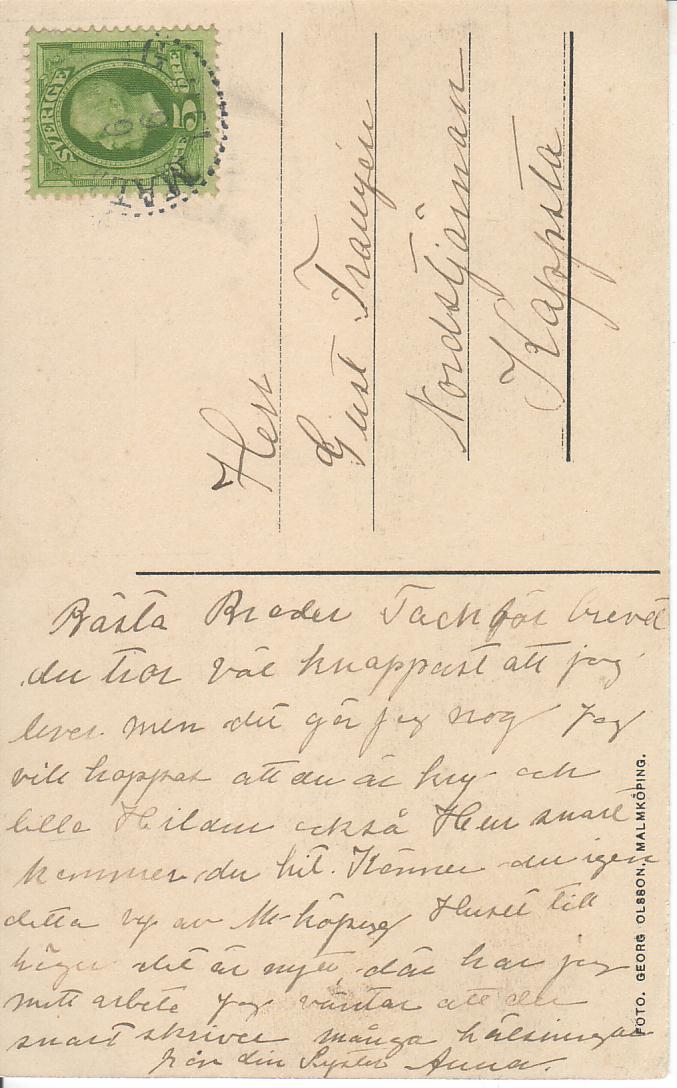 SVERIGE
5
Herr
Gust Tranyén
Nordstjärnan
Kappsta
Bästa Broder Tack för brevet
du tror väl knappast att jag
lever men det gör jag nog Jag
vill hoppas att du är kry och
lilla Hildur också Hur snart
kommer du hit. Känner du igen
detta vy av M-köping Huset till
höger det är nytt, där har jag
mitt arbete Jag väntar att du
snart skriver många hälsningar
från din Syster Anna.
FOTO. GEORG OLSSON, MALMKÖPING.